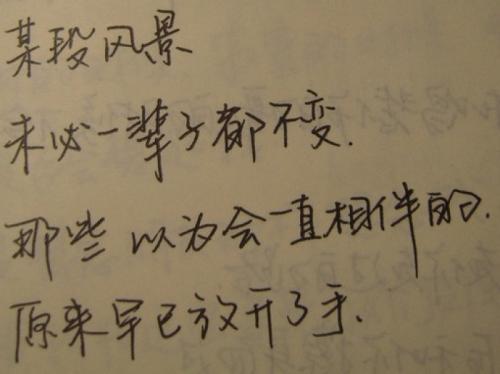 某段风景
未必一辈子都不变.
那些以为会一直相伴的.
原来早已放开了手.